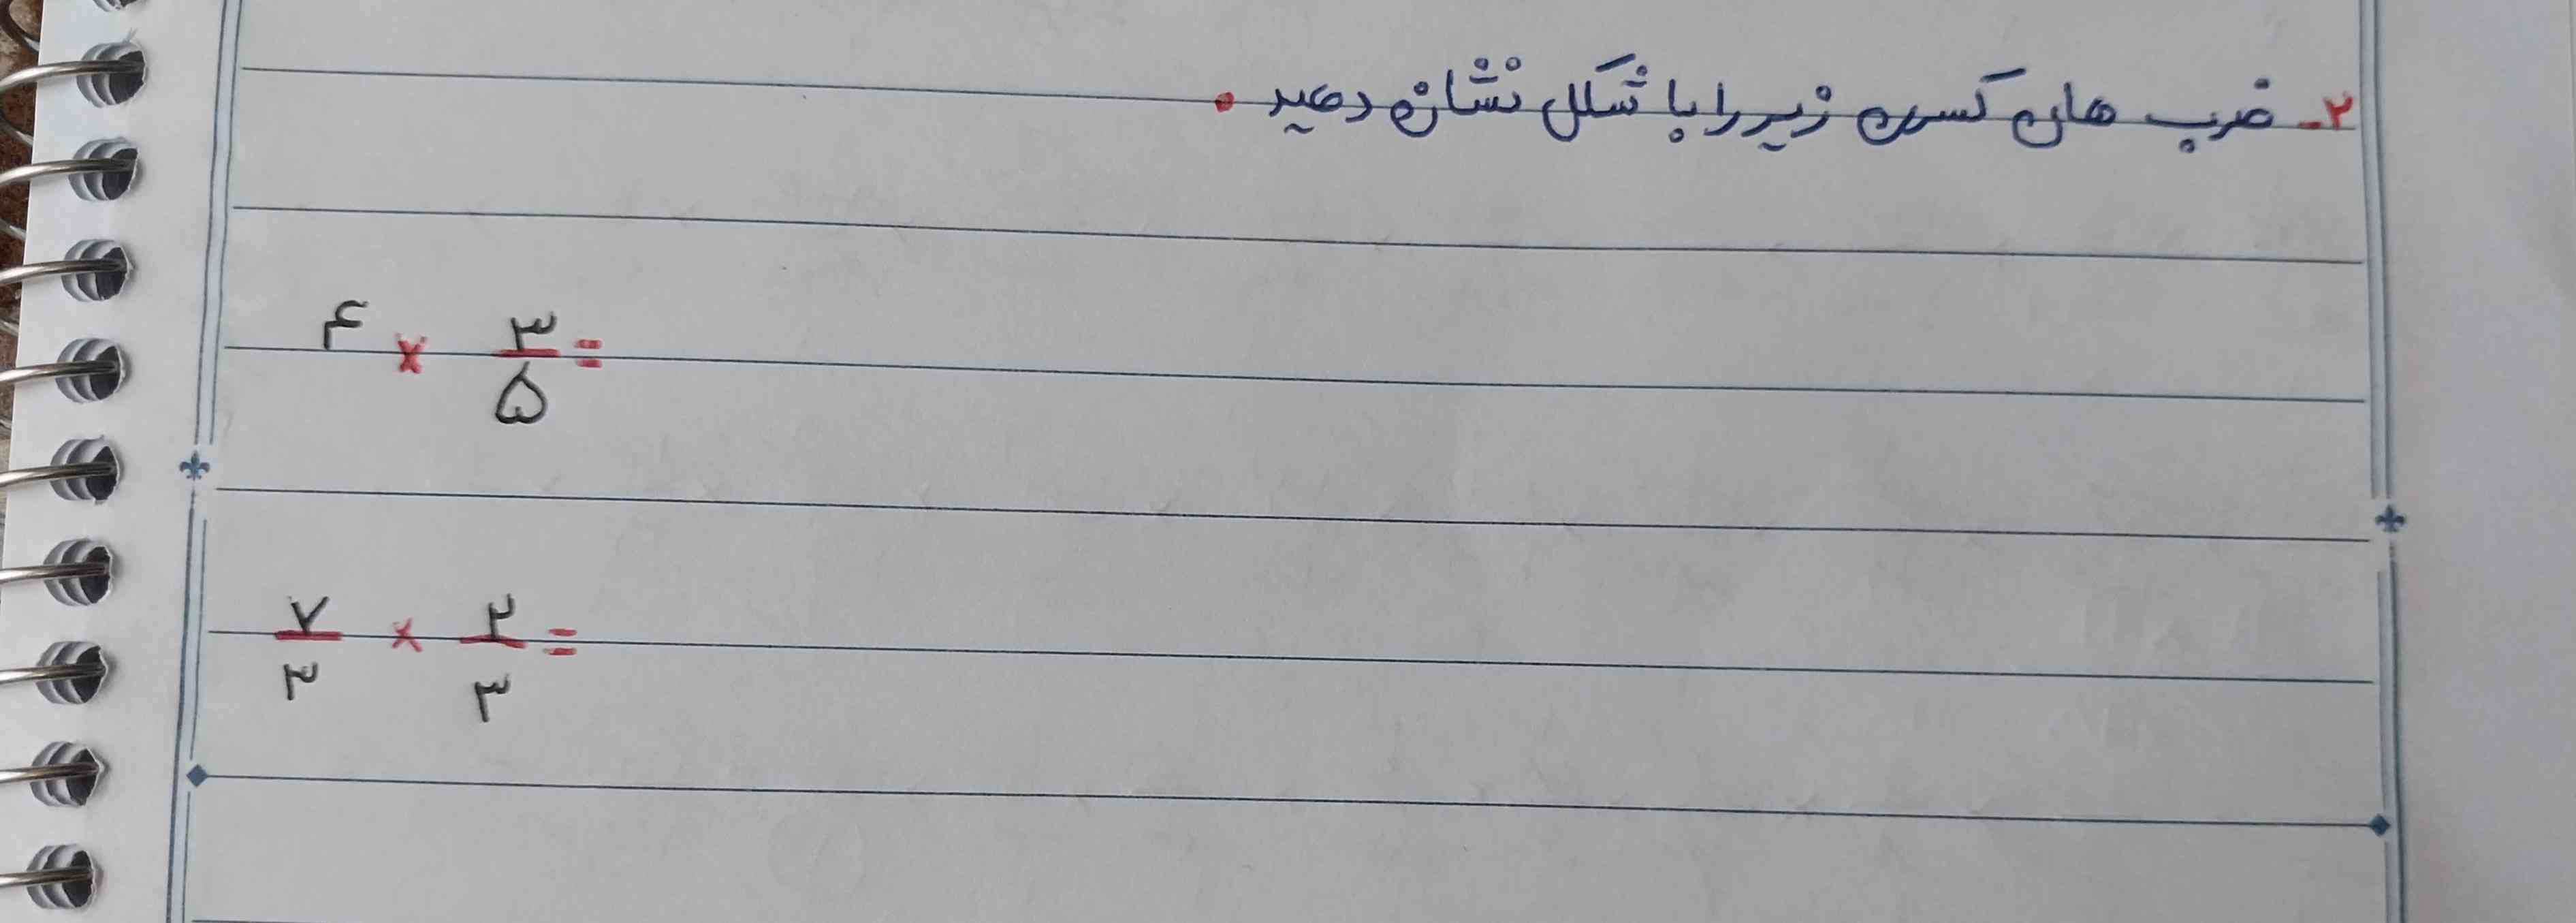 ۲- ضرب های کسری زیر را با شکل نشان دهید.
۴ × ۳/۵ =
۷/۳ × ۲/۳ =